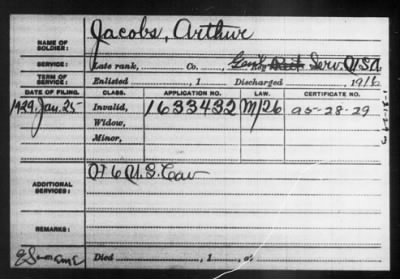 NAME OF SOLDIER: Jacobs, Arthur
SERVICE: Late rank, Co. Reg Serv. USA
TERM OF SERVICE: Enlisted , 1 Discharged 191
DATE OF FILING. CLASS. APPLICATION NO. LAW. CERTIFICATE NO.
1929, Jan. 25 Invalid, 1633432 M/26 a5-28-29
Widow,
Minor,
ADDITIONAL SERVICES: U.S. Cav
REMARKS:
Died , 1 , at